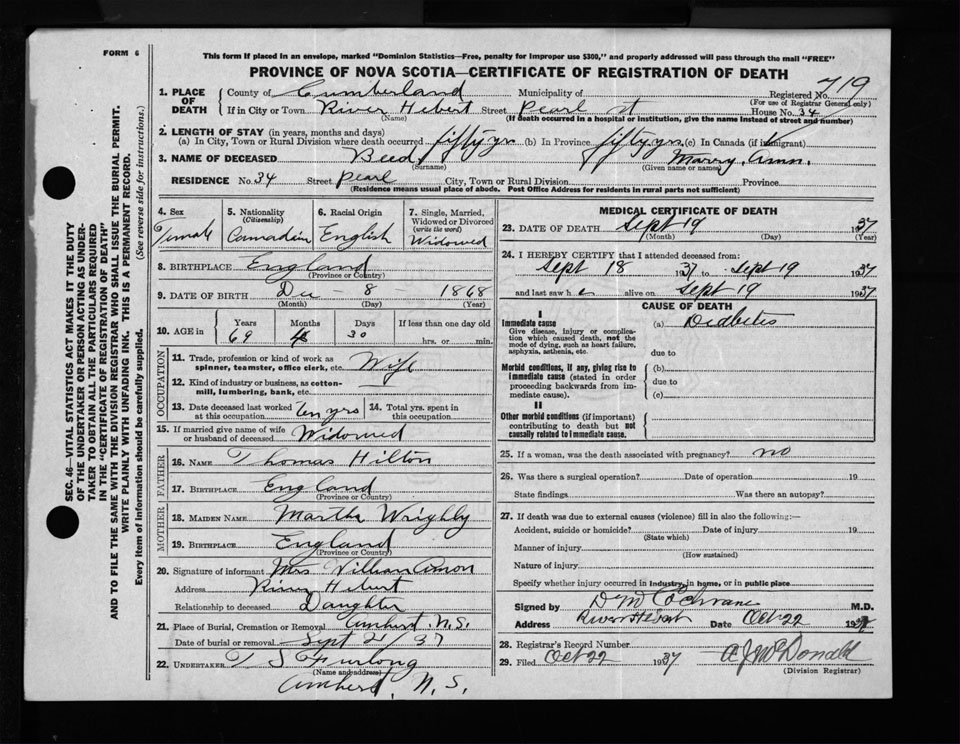 FORM 6
This form if placed in an envelope, marked "Dominion Statistics—Free, penalty for improper use $300," and properly addressed will pass through the mail "FREE"
PROVINCE OF NOVA SCOTIA—CERTIFICATE OF REGISTRATION OF DEATH
SEC. 46—VITAL STATISTICS ACT MAKES IT THE DUTY
OF THE UNDERTAKER OR PERSON ACTING AS UNDER-
TAKER TO OBTAIN ALL THE PARTICULARS REQUIRED
IN THE "CERTIFICATE OF REGISTRATION OF DEATH"
AND TO FILE THE SAME WITH THE DIVISION REGISTRAR WHO SHALL ISSUE THE BURIAL PERMIT.
WRITE PLAINLY WITH UNFADING INK. THIS IS A PERMANENT RECORD.
Every item of information should be carefully supplied. (See reverse side for instructions.)
1. PLACE OF DEATH County of Cumberland Municipality of Registered No. 719
(For use of Registrar General only)
If in City or Town River Hebert Street Pearl st House No. 34
(Name) (If death occurred in a hospital or institution, give the name instead of street and number)
2. LENGTH OF STAY (in years, months and days)
(a) In City, Town or Rural Division where death occurred fifty yr (b) In Province fifty yrs (c) In Canada (if immigrant)
3. NAME OF DECEASED Beed Marry Ann.
(Surname) (Given name or names)
RESIDENCE No. 34 Street Pearl City, Town or Rural Division Province
(Residence means usual place of abode. Post Office Address for residents in rural parts not sufficient)
4. Sex 5. Nationality (Citizenship) 6. Racial Origin 7. Single, Married, Widowed or Divorced (write the word)
Female Canadian English Widowed
8. BIRTHPLACE England
(Province or Country)
9. DATE OF BIRTH Dec - 8 - 1868
(Month) (Day) (Year)
10. AGE in Years Months Days If less than one day old
69 30 hrs. or min.
OCCUPATION
11. Trade, profession or kind of work as spinner, teamster, office clerk, etc. Wife
12. Kind of industry or business, as cotton-mill, lumbering, bank, etc.
13. Date deceased last worked at this occupation Ten yrs 14. Total yrs. spent in this occupation
15. If married give name of wife or husband of deceased Widowed
FATHER
16. NAME Thomas Hilton
17. BIRTHPLACE England
(Province or Country)
MOTHER
18. MAIDEN NAME Martha Wrighly
19. BIRTHPLACE England
(Province or Country)
20. Signature of informant Mrs William Amon
Address River Hebert
Relationship to deceased Daughter
21. Place of Burial, Cremation or Removal Amherst N.S.
Date of burial or removal Sept 21/37
22. UNDERTAKER T S Furlong
(Name and address)
Amherst, N.S.
MEDICAL CERTIFICATE OF DEATH
23. DATE OF DEATH Sept 19 1937
(Month) (Day) (Year)
24. I HEREBY CERTIFY that I attended deceased from:
Sept 18 1937 to Sept 19 1937
and last saw h e alive on Sept 19 1937
CAUSE OF DEATH
I
Immediate cause (a) Diabetes
Give disease, injury or complication which caused death, not the mode of dying, such as heart failure, asphyxia, asthenia, etc.
due to
Morbid conditions, if any, giving rise to immediate cause (stated in order proceeding backwards from immediate cause).
(b)
due to
(c)
II
Other morbid conditions (if important) contributing to death but not causally related to immediate cause.
25. If a woman, was the death associated with pregnancy? no
26. Was there a surgical operation? Date of operation 19
State findings Was there an autopsy?
27. If death was due to external causes (violence) fill in also the following:—
Accident, suicide or homicide? Date of injury 19
(State which)
Manner of injury
(How sustained)
Nature of injury
Specify whether injury occurred in industry, in home, or in public place
Signed by Cochrane M.D.
Address River Hebert Date Oct 22 1937
28. Registrar's Record Number
29. Filed Oct 22 1937 A J McDonald
(Division Registrar)